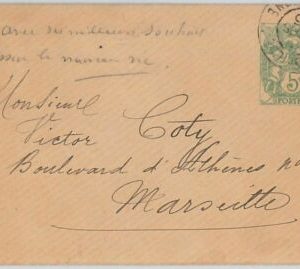 avec ses meilleurs souhaits
pour le nouveau né.
Monsieur
Victor Coty
Boulevard d'Athènes no
Marseille
5
POSTE